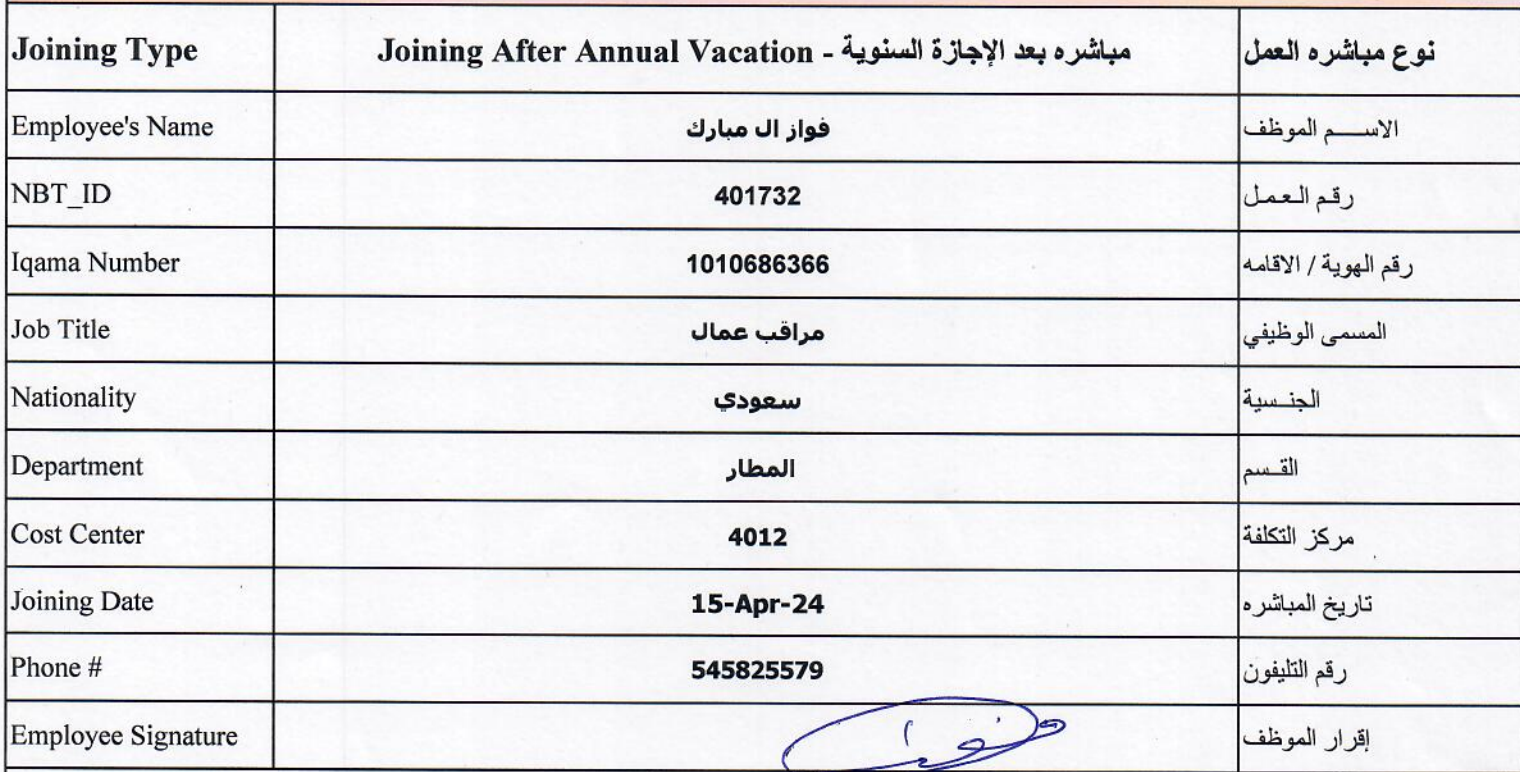 Joining Type Joining After Annual Vacation - مباشره بعد الإجازة السنوية نوع مباشره العمل
Employee's Name فواز ال مبارك الاســـم الموظف
NBT_ID 401732 رقم العمل
Iqama Number 1010686366 رقم الهوية / الاقامه
Job Title مراقب عمال المسمى الوظيفي
Nationality سعودي الجنــسية
Department المطار القــسم
Cost Center 4012 مركز التكلفة
Joining Date 15-Apr-24 تاريخ المباشره
Phone # 545825579 رقم التليفون
Employee Signature إقرار الموظف